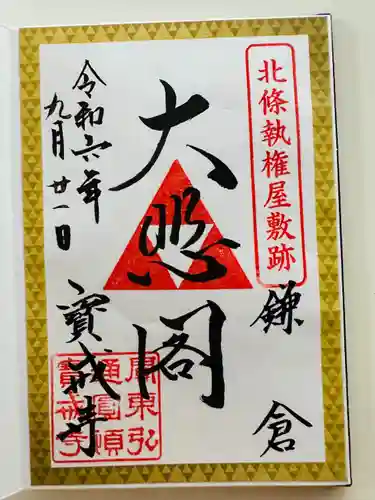 北條執権屋敷跡
鎌倉
大悲閣
令和六年
九月廿一日
寶戒寺
關東弘
通圓頓
寶戒寺